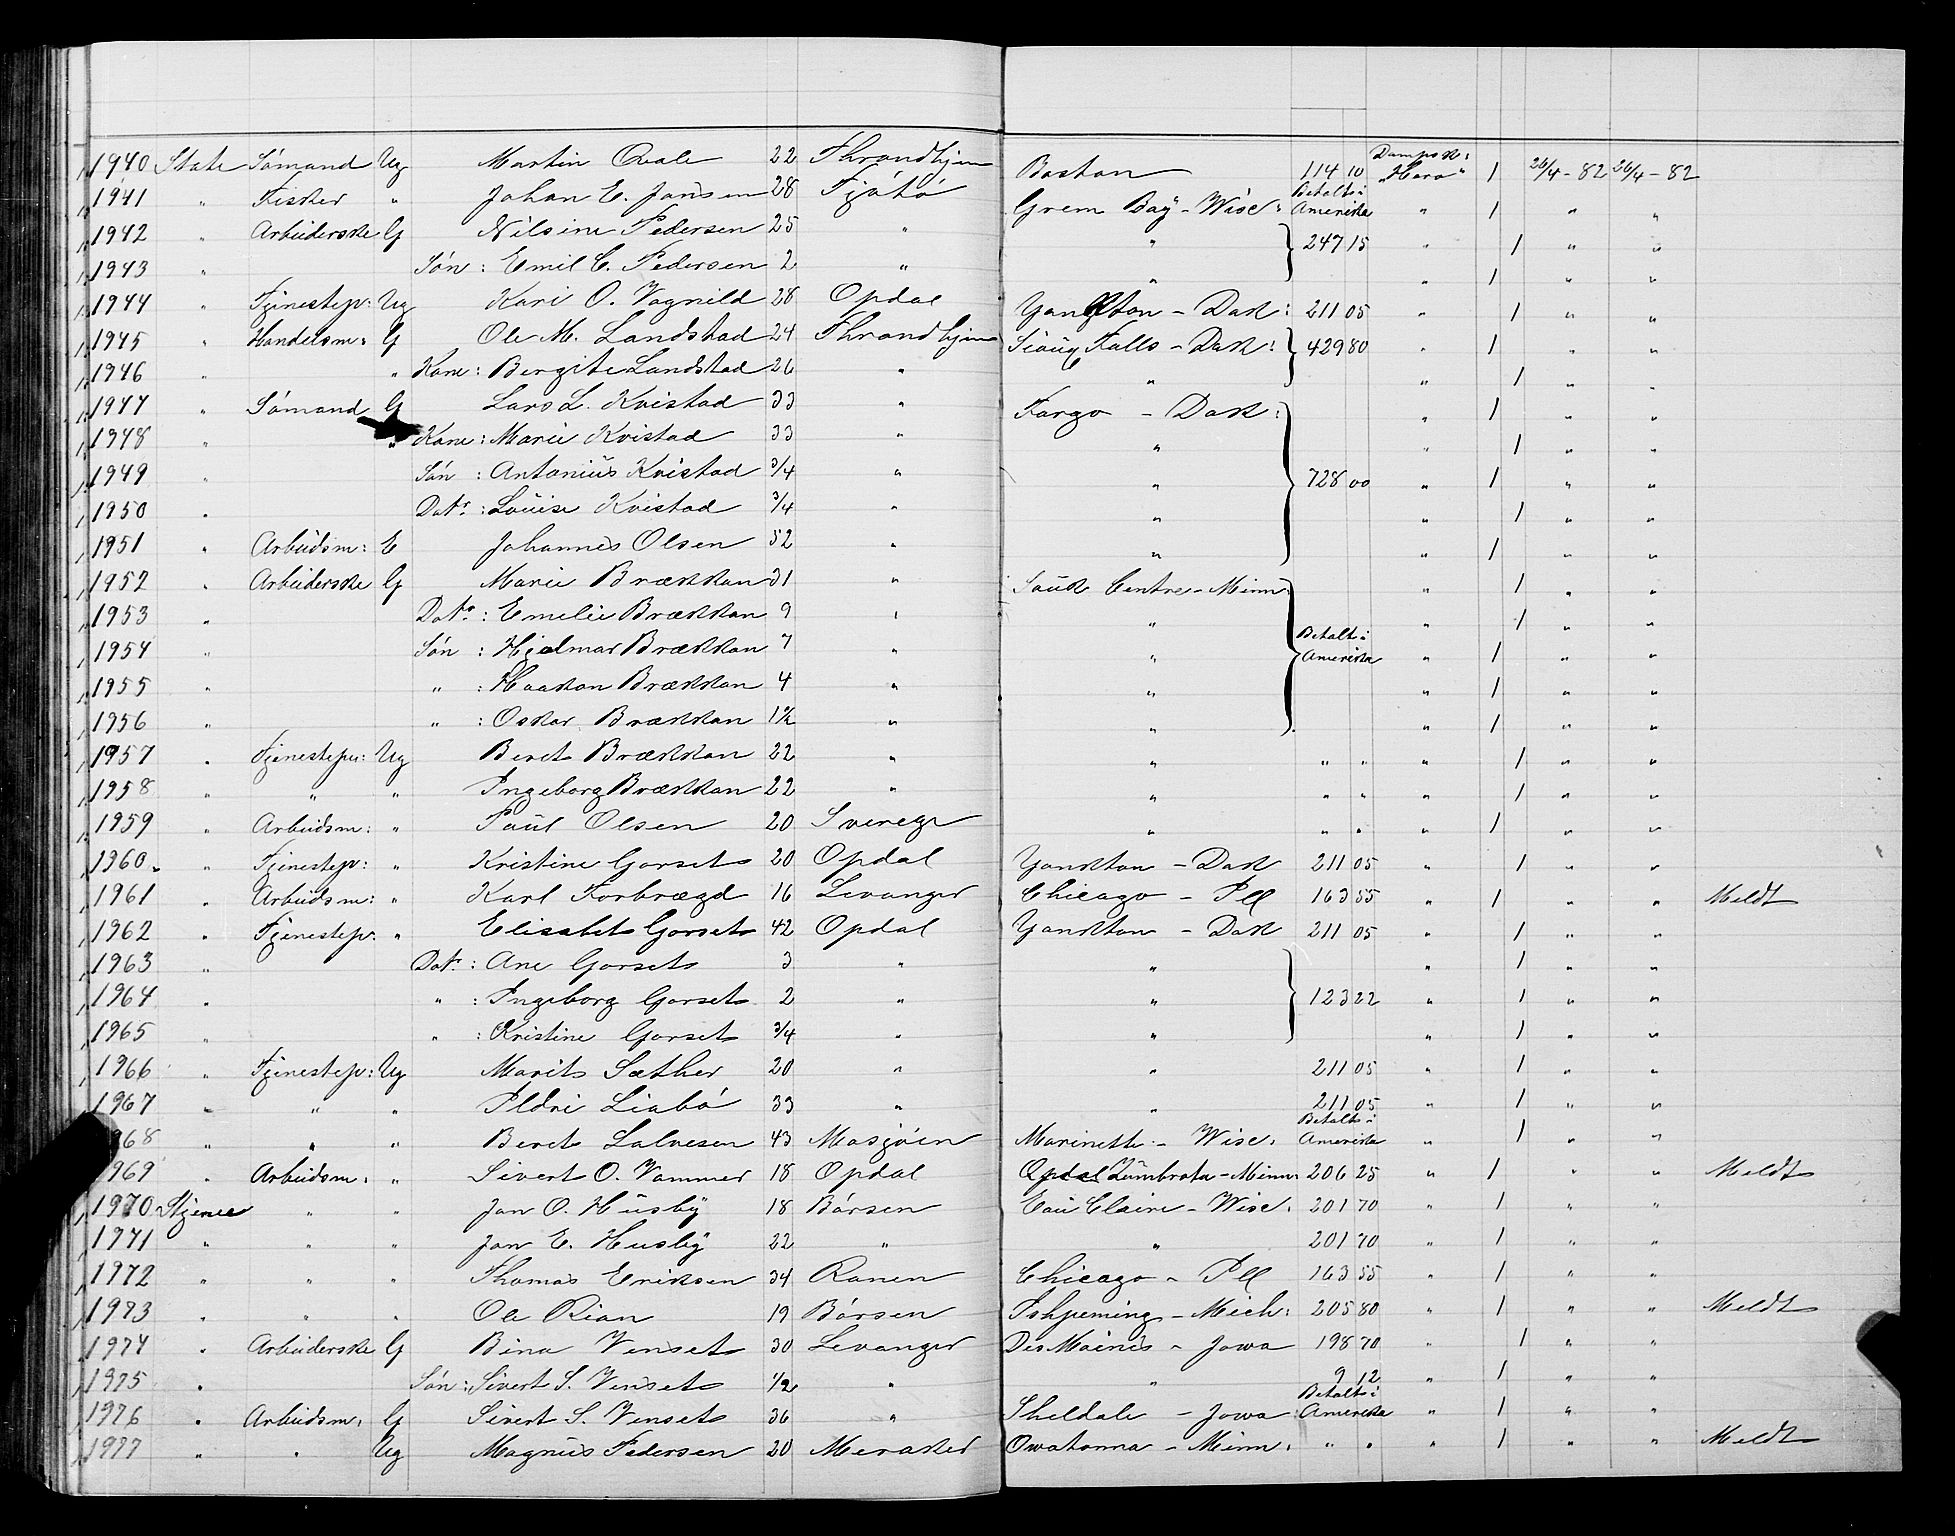 1940 State Sømand Ug Martin Qvale 22 Throndhjem Boston 114 10 Dampsk: "Hero" 1 26/4 - 82 26/4 - 82
1941 " Fisker " Johan E. Jonsen 28 Fjøtø Green Bay - Wisc: Betalt i Amerika " 1 " "
1942 " Arbeiderske G Nilsine Pedersen 25 " " 247 15 " 1 " "
1943 " Søn: Emil C. Pedersen 2 " " " 1 " "
1944 " Tjenestep: Ug Kari O. Vognild 28 Opdal Yankton - Dak: 211 05 " 1 " "
1945 " Handelsm: G Ole M. Landstad 24 Throndhjem Sioux Falls - Dak: 429 80 " 1 " "
1946 " " Kone: Bergite Landstad 26 " " " 1 " "
1947 " Sømand G Lars L. Kvistad 33 " Fargo - Dak: " 1 " "
1948 " " Kone: Marie Kvistad 33 " " " 1 " "
1949 " Søn: Antonius Kvistad 3/4 " " 728 00 " 1 " "
1950 " Datr: Louise Kvistad 3/4 " " " 1 " "
1951 " Arbeidsm: E Johannes Olsen 52 " " " 1 " "
1952 " Arbeiderske G Marie Brækkan 31 " Sauk Centre - Minn " 1 " "
1953 " Datr: Emelie Brækkan 9 " " " 1 " "
1954 " Søn: Hjalmar Brækkan 7 " " Betalt i Amerika " 1 " "
1955 " " : Haakon Brækkan 4 " " " 1 " "
1956 " " : Oskar Brækkan 1 1/2 " " " 1 " "
1957 " Tjenestep: Ug Beret Brækkan 22 " " " " " 1 " "
1958 " " " Ingeborg Brækkan 22 " " " " " 1 " "
1959 " Arbeidsm: " Paul Olsen 20 Sverege " " " " 1 " "
1960 " Tjenestep: " Kristine Gorset 20 Opdal Yankton - Dak 211 05 " 1 " "
1961 " Arbeidsm: " Karl Forbregd 16 Levanger Chicago - Ill 163 55 " 1 " " Meldt
1962 " Tjenestep: " Elisabet Gorset 42 Opdal Yankton - Dak 211 05 " 1 " "
1963 " Datr: Ane Gorset 3 " " " 1 " "
1964 " " : Ingeborg Gorset 2 " " 123 22 " 1 " "
1965 " " : Kristine Gorset 3/4 " " " 1 " "
1966 " Tjenestep: Ug Marit Sæther 20 " " 211 05 " 1 " "
1967 " " " Ildri Liabø 33 " " 211 05 " 1 " "
968 " " " Beret Salvesen 43 Mosjøen Marinette - Wisc: Betalt i Amerika " 1 " "
969 " Arbeidsm: " Sivert O. Vammer 18 Opdal Opdal Zumbrota - Minn: 206 25 " 1 " " Meldt
1970 Stjerne " " Jon O. Husby 18 Børsen Eau Claire - Wisc: 201 70 " 1 " "
1971 " " " Jon E. Husby 22 " " 201 70 " 1 " "
1972 " " " Thomas Eriksen 34 Ranen Chicago - Ill 163 55 " 1 " "
1973 " " " Ole Rian 19 Børsen Ishpeming - Mich: 205 80 " 1 " " Meldt
1974 " Arbeiderske G Bina Venset 30 Levanger Des Moines - Jowa 198 70 " 1 " "
1975 " Søn: Sivert S. Venset 1/2 " " 9 12 " 1 " "
1976 " Arbeidsm: G Sivert S. Venset 36 " Sheldale - Jowa Betalt i Amerika " 1 " "
1977 " " Ug Magnus Pedersen 20 Meraker Owatonna - Minn: " " " 1 " " Meldt